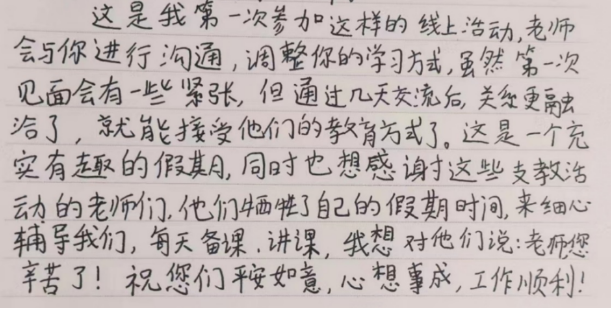 这是我第一次参加这样的线上活动,老师
会与你进行沟通,调整你的学习方式,虽然第一次
见面会有一些紧张,但通过几天交流后,关系更融
洽了,就能接受他们的教育方式了。这是一个充
实有趣的假期,同时也想感谢这些支教活
动的老师们,他们牺牲了自己的假期时间,来细心
辅导我们,每天备课、讲课,我想对他们说:老师您
辛苦了!祝您们平安如意,心想事成,工作顺利!